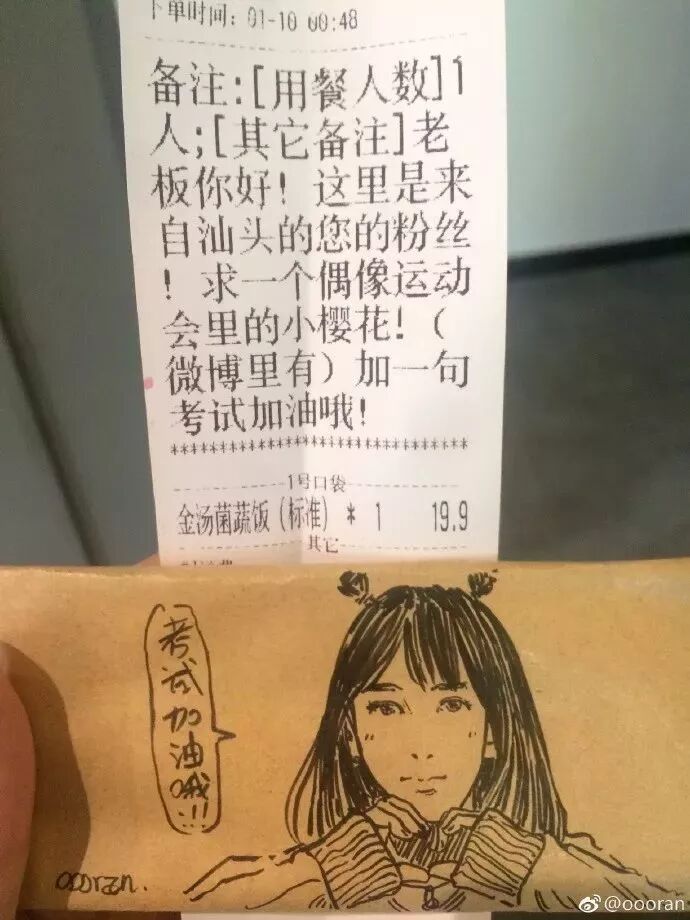 下单时间: 01-10 00:48
备注:[用餐人数]1
人;[其它备注]老
板你好！这里是来
自汕头的您的粉丝
！求一个偶像运动
会里的小樱花!（
微博里有）加一句
考试加油哦!
********************************
1号口袋
金汤菌蔬饭(标准) * 1 19.9
其它
考试加油哦!!
ooorzn.
@oooran